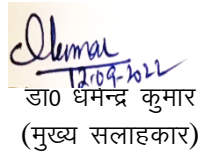 Dkumar
12-09-2022
डा0 धर्मेन्द्र कुमार
(मुख्य सलाहकार)